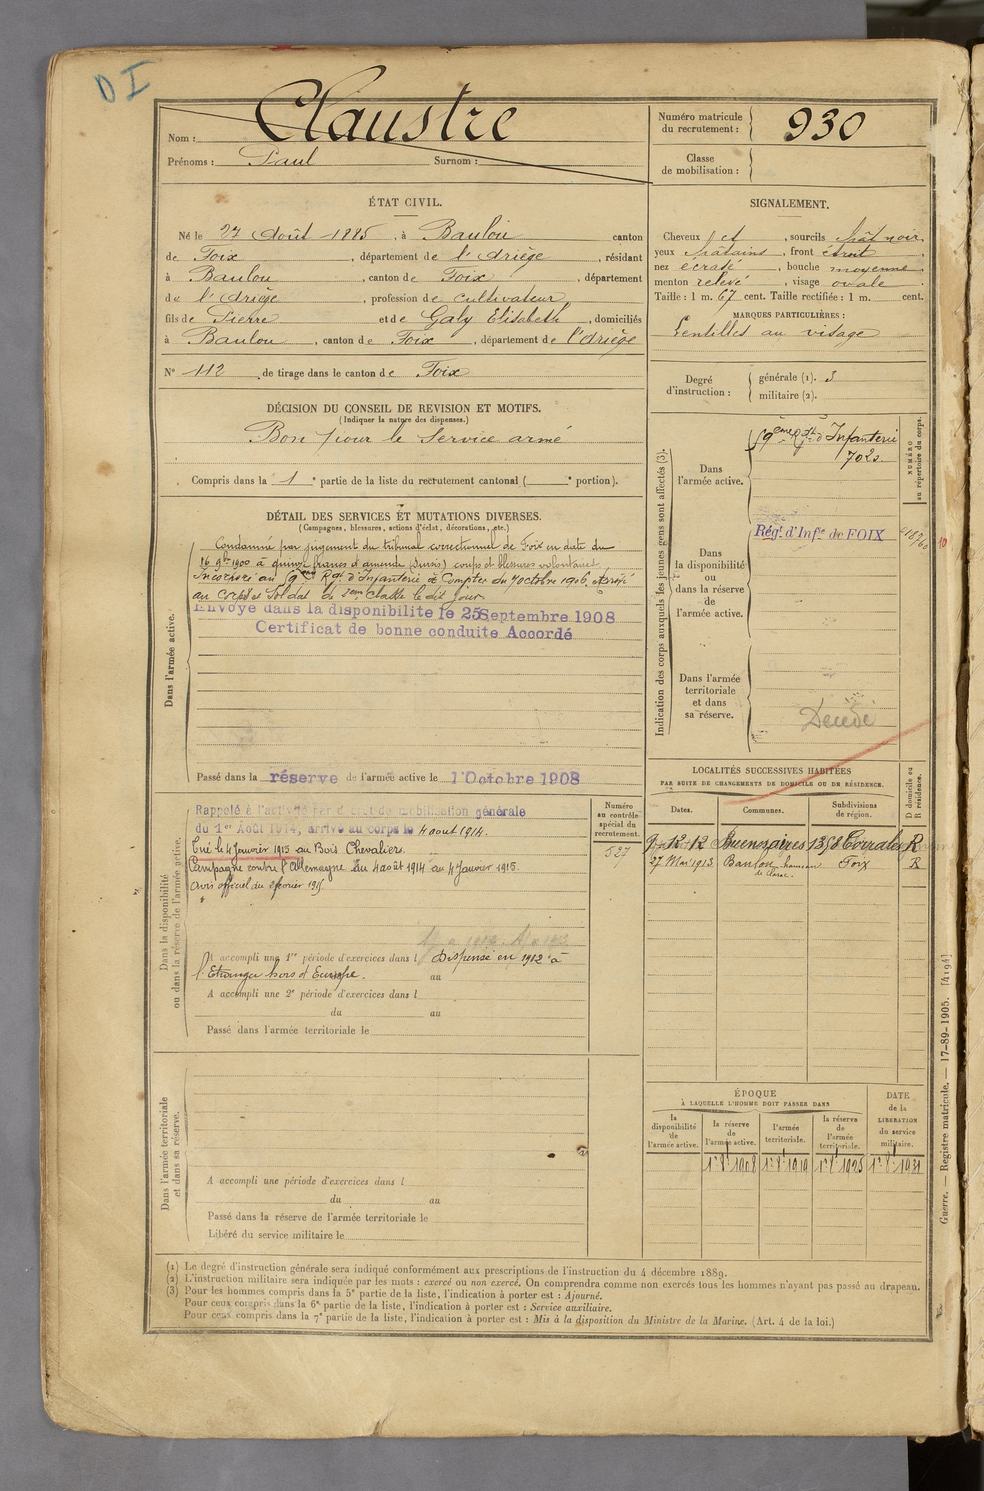 D I
Nom : Claustre
Prénoms : Paul Surnom :
Numéro matricule
du recrutement : 930
Classe
de mobilisation :
ÉTAT CIVIL.
Né le 27 Août 1885, à Baulou canton
de Foix, département de l'Ariège, résidant
à Baulou, canton de Foix, département
de l'Ariège, profession de cultivateur
fils de Pierre et de Galy Elisabeth, domiciliés
à Baulou, canton de Foix, département de l'Ariège
N° 112 de tirage dans le canton de Foix
SIGNALEMENT.
Cheveux ct, sourcils chât noir,
yeux châtains, front étroit,
nez écrasé, bouche moyenne,
menton relevé, visage ovale.
Taille : 1 m. 67 cent. Taille rectifiée : 1 m. cent.
MARQUES PARTICULIÈRES :
Lentilles au visage
Degré
d'instruction :
générale (1). 3
militaire (2).
DÉCISION DU CONSEIL DE REVISION ET MOTIFS.
(Indiquer la nature des dispenses.)
Bon pour le service armé
Compris dans la 1e partie de la liste du recrutement cantonal ( e portion).
DÉTAIL DES SERVICES ET MUTATIONS DIVERSES.
(Campagnes, blessures, actions d'éclat, décorations, etc.)
Dans l'armée active.
Condamné par jugement du tribunal correctionnel de Foix en date du
16 9bre 1900 à quinze francs d'amende (sursis) coups et blessures volontaires.
Incorporé au 59ème Rgt d'Infanterie à compter du 7 octobre 1906, Arrivé
au corps et Soldat de 2eme classe le dit jour.
Envoyé dans la disponibilité le 25 Septembre 1908
Certificat de bonne conduite Accordé
Passé dans la réserve de l'armée active le 1er Octobre 1908
Indication des corps auxquels les jeunes gens sont affectés (3).
NUMÉRO
au répertoire du corps.
Dans
l'armée active.
59ème Rgt d'Infanterie
702
Dans
la disponibilité
ou
dans la réserve
de
l'armée active.
Régt. d'Infie de FOIX
Dans l'armée
territoriale
et dans
sa réserve.
Décédé
LOCALITÉS SUCCESSIVES HABITÉES
PAR SUITE DE CHANGEMENTS DE DOMICILE OU DE RÉSIDENCE.
Dates. Communes. Subdivisions
de région. D domicile ou
R résidence.
9 - 12 - 12 Buenosaires 1358 Corrales R
27 Mai 1913 Baulou hameau Foix R
Dans la disponibilité
ou dans la réserve de l'armée active.
Numéro
au contrôle
spécial du
recrutement.
527
Rappelé à l'activité par décret de mobilisation générale
du 1er Août 1914, arrivé au corps le 4 aout 1914.
Tué le 4 Janvier 1915 au Bois Chevaliers.
Campagne contre l'Allemagne du 4 août 1914 au 4 Janvier 1915
Avis officiel du 2 février 1915
A accompli une 1re période d'exercices dans l Dispensé en 1912 à
l'Etranger hors d'Europe. au
A accompli une 2e période d'exercices dans l
du au
Passé dans l'armée territoriale le
Dans l'armée territoriale
et dans sa réserve.
A accompli une période d'exercices dans l
du au
Passé dans la réserve de l'armée territoriale le
Libéré du service militaire le
ÉPOQUE
À LAQUELLE L'HOMME DOIT PASSER DANS
la
disponibilité
de
l'armée active.
la réserve
de
l'armée active.
l'armée
territoriale.
la réserve
de
l'armée
territoriale.
DATE
de la
LIBÉRATION
du service
militaire.
1er 8bre 1908 1er 8bre 1919 1er 8bre 1925 1er 8bre 1931
(1) Le degré d'instruction générale sera indiqué conformément aux prescriptions de l'instruction du 4 décembre 1889.
(2) L'instruction militaire sera indiquée par les mots : exercé ou non exercé. On comprendra comme non exercés tous les hommes n'ayant pas passé au drapeau.
(3) Pour les hommes compris dans la 5e partie de la liste, l'indication à porter est : Ajourné.
Pour ceux compris dans la 6e partie de la liste, l'indication à porter est : Service auxiliaire.
Pour ceux compris dans la 7e partie de la liste, l'indication à porter est : Mis à la disposition du Ministre de la Marine. (Art. 4 de la loi.)
Guerre. — Registre matricule. — 17-89-1905. [4194]